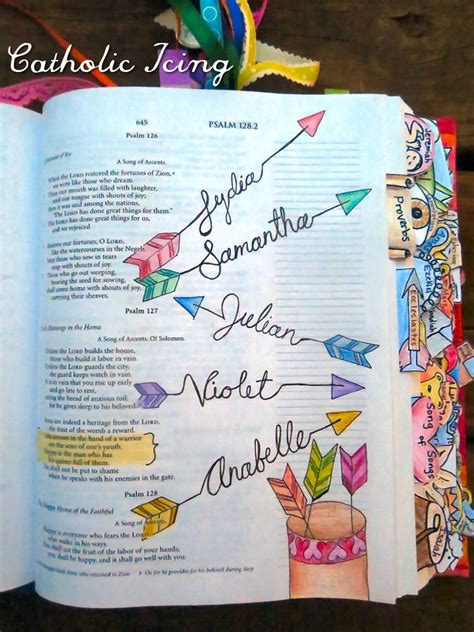 Catholic Icing
645
PSALM 128.2
Psalm 126
A Song of Ascents.
When the LORD restored the fortunes of Zion,
we were like those who dream.
Then our mouth was filled with laughter,
and our tongue with shouts of joy;
then it was said among the nations,
"The LORD has done great things for them."
The LORD has done great things for us,
Restore our fortunes, O LORD,
like the watercourses in the Negeb
May those who sow in tears
reap with shouts of joy.
Those who go out weeping,
bearing the seed for sowing,
shall come home with shouts of joy,
carrying their sheaves.
Psalm 127
in the Home
A Song of Ascents. Of Solomon.
Unless the LORD builds the house,
those who build it labor in vain.
Unless the LORD guards the city,
the guard keeps watch in vain.
It is in vain that you rise up early
and go late to rest,
eating the bread of anxious toil,
for he gives sleep to his beloved.
are indeed a heritage from the LORD,
the fruit of the womb a reward.
in the hand of a warrior
are the sons of one's youth.
Happy is the man who has
his quiver full of them.
He shall not be put to shame
when he speaks with his enemies in the gate.
Psalm 128
The Happy Home of the Faithful
A Song of Ascents.
Happy is everyone who fears the LORD,
who walks in his ways.
You shall eat the fruit of the labor of your hands;
you shall be happy, and it shall go well with you.
who returned to Zion
Or for he provides for his beloved during sleep
Lydia
Samantha
Julian
Violet
Anabelle
Jeremiah
Proverbs
Ezekiel
Ecclesiastes
Song of Songs
Isaiah